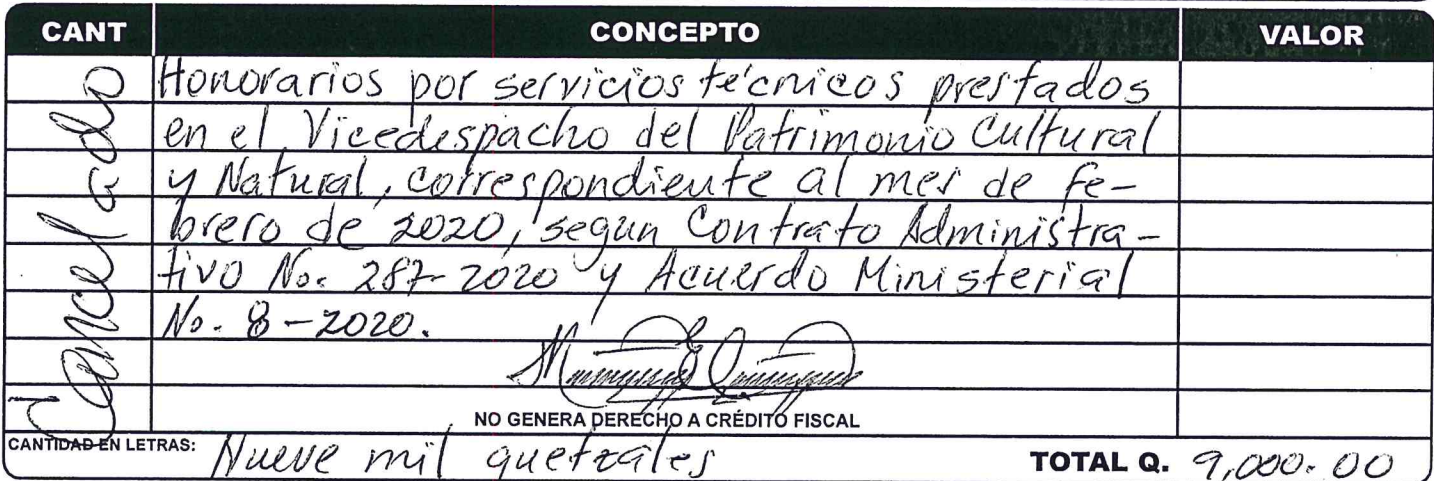 CANT CONCEPTO VALOR
Cancelado
Honorarios por servicios técnicos prestados
en el Vicedespacho del Patrimonio Cultural
y Natural, correspondiente al mes de fe-
brero de 2020, segun Contrato Administra-
tivo No. 287-2020 y Acuerdo Ministerial
No. 8-2020.
NO GENERA DERECHO A CRÉDITO FISCAL
CANTIDAD EN LETRAS: Nueve mil quetzales TOTAL Q. 9,000.00